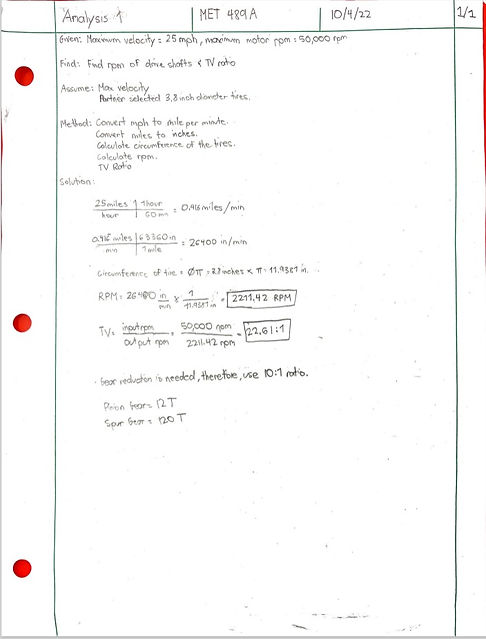 Analysis 1 MET 489A 10/4/22 1/1
Given: Maximum velocity = 25 mph, maximum motor rpm = 50,000 rpm
Find: Find rpm of drive shafts & TV ratio
Assume: Max velocity
Partner selected 3.8 inch diameter tires.
Method: Convert mph to mile per minute.
Convert miles to inches.
Calculate circumference of the tires.
Calculate rpm.
TV Ratio
Solution:
25 miles | 1 hour
hour | 60 min = 0.416 miles/min
0.416 miles | 63360 in
min | 1 mile = 26400 in/min
Circumference of tire = Øπ = 3.8 inches × π = 11.9381 in.
RPM = 26400 in/min × 1/11.9381 in = 2211.42 RPM
TV = input rpm / output rpm = 50,000 rpm / 2211.42 rpm = 22.61:1
· Gear reduction is needed, therefore, use 10:1 ratio.
Pinion Gear = 12 T
Spur Gear = 120 T